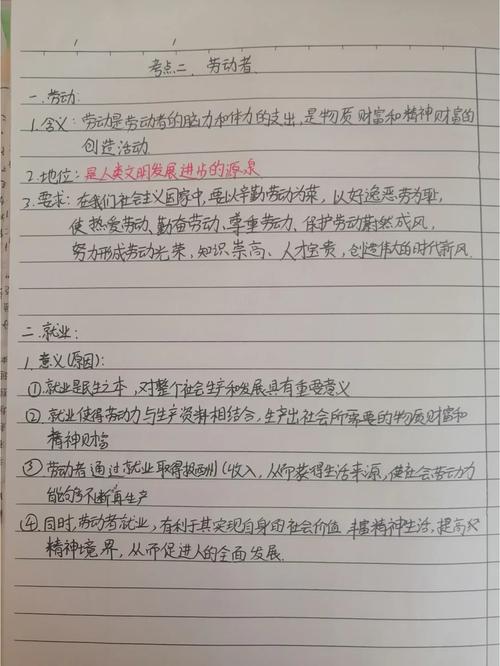 考点二、劳动者.
一.劳动:
1.含义:劳动是劳动者的脑力和体力的支出,是物质财富和精神财富的
创造活动
2.地位:是人类文明发展进步的源泉
3.要求:在我们社会主义国家中,要以辛勤劳动为荣,以好逸恶劳为耻,
使热爱劳动、勤奋劳动、尊重劳动、保护劳动蔚然成风,
努力形成劳动光荣、知识崇高、人才宝贵,创造伟大的时代新风.
二.就业:
1.意义(原因):
①.就业是民生之本,对整个社会生产和发展具有重要意义
②.就业使得劳动力与生产资料相结合,生产出社会所需要的物质财富和
精神财富
③劳动者通过就业取得报酬(收入,从而获得生活来源,使社会劳动力
能够不断再生产
④.同时,劳动者就业,有利于其实现自身的社会价值 丰富精神生活,提高
精神境界,从而促进人的全面发展.